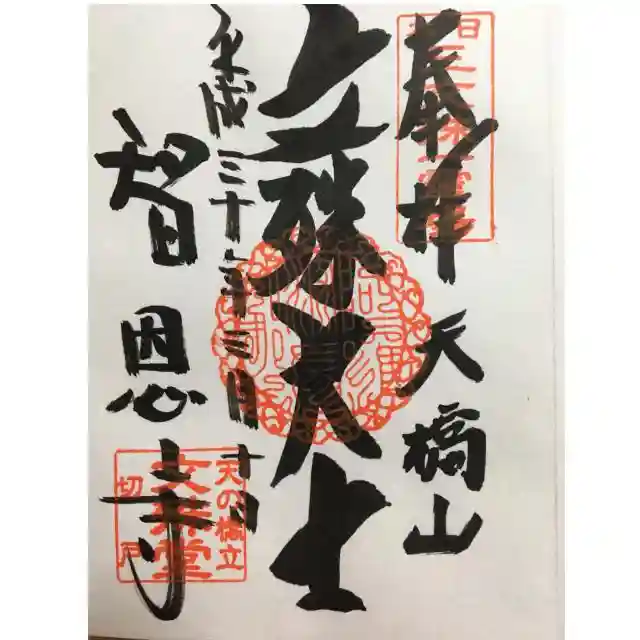 奉拝 天橋山
文殊大士
平成三十年三月十日
智恩寺
天の橋立
文殊堂
切戸